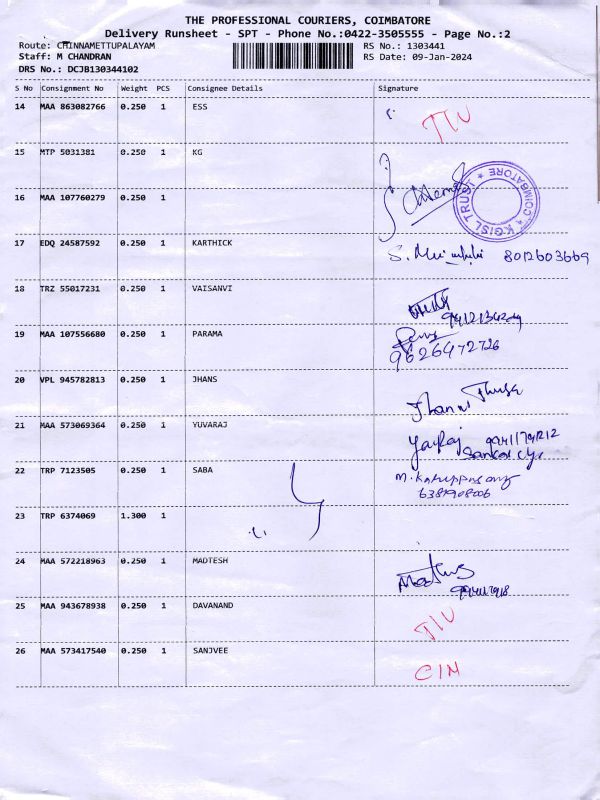 THE PROFESSIONAL COURIERS, COIMBATORE
Delivery Runsheet - SPT - Phone No.:0422-3505555 - Page No.:2
Route: CHINNAMETTUPALAYAM RS No.: 1303441
Staff: M CHANDRAN RS Date: 09-Jan-2024
DRS No.: DCJB130344102
S No Consignment No Weight PCS Consignee Details Signature
14 MAA 863082766 0.250 1 ESS
15 MTP 5031381 0.250 1 KG
16 MAA 107760279 0.250 1
KGISL TRUST ★ COIMBATORE ★
17 EDQ 24587592 0.250 1 KARTHICK 8012603669
18 TRZ 55017231 0.250 1 VAISANVI
19 MAA 107556680 0.250 1 PARAMA
9626472726
20 VPL 945782813 0.250 1 JHANS
21 MAA 573069364 0.250 1 YUVARAJ
22 TRP 7123505 0.250 1 SABA
6381908006
23 TRP 6374069 1.300 1
24 MAA 572218963 0.250 1 MADTESH
25 MAA 943678938 0.250 1 DAVANAND
26 MAA 573417540 0.250 1 SANJVEE